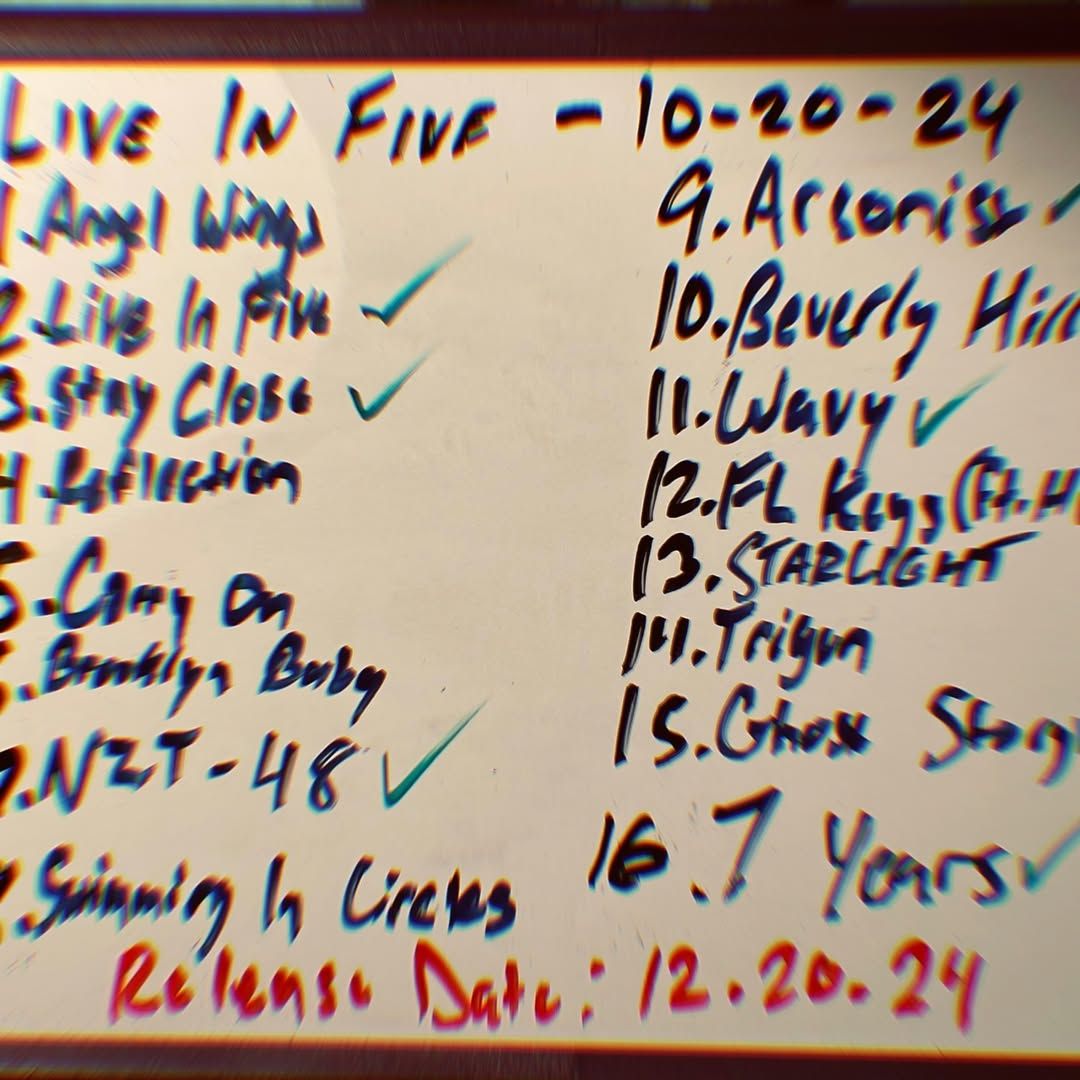 LIVE IN FIVE - 10-20-24
1. Angel Wings
2. Live In Five ✓
3. Stay Close ✓
4. Reflection
5. Carry On
6. Brooklyn Baby
7. NZT-48 ✓
8. Spinning In Circles
9. Arsonist ✓
10. Beverly Hill
11. Wavy ✓
12. FL Keys (Ft. H
13. STARLIGHT
14. Trigun
15. Ghost Story
16. 7 Years ✓
Release Date: 12.20.24